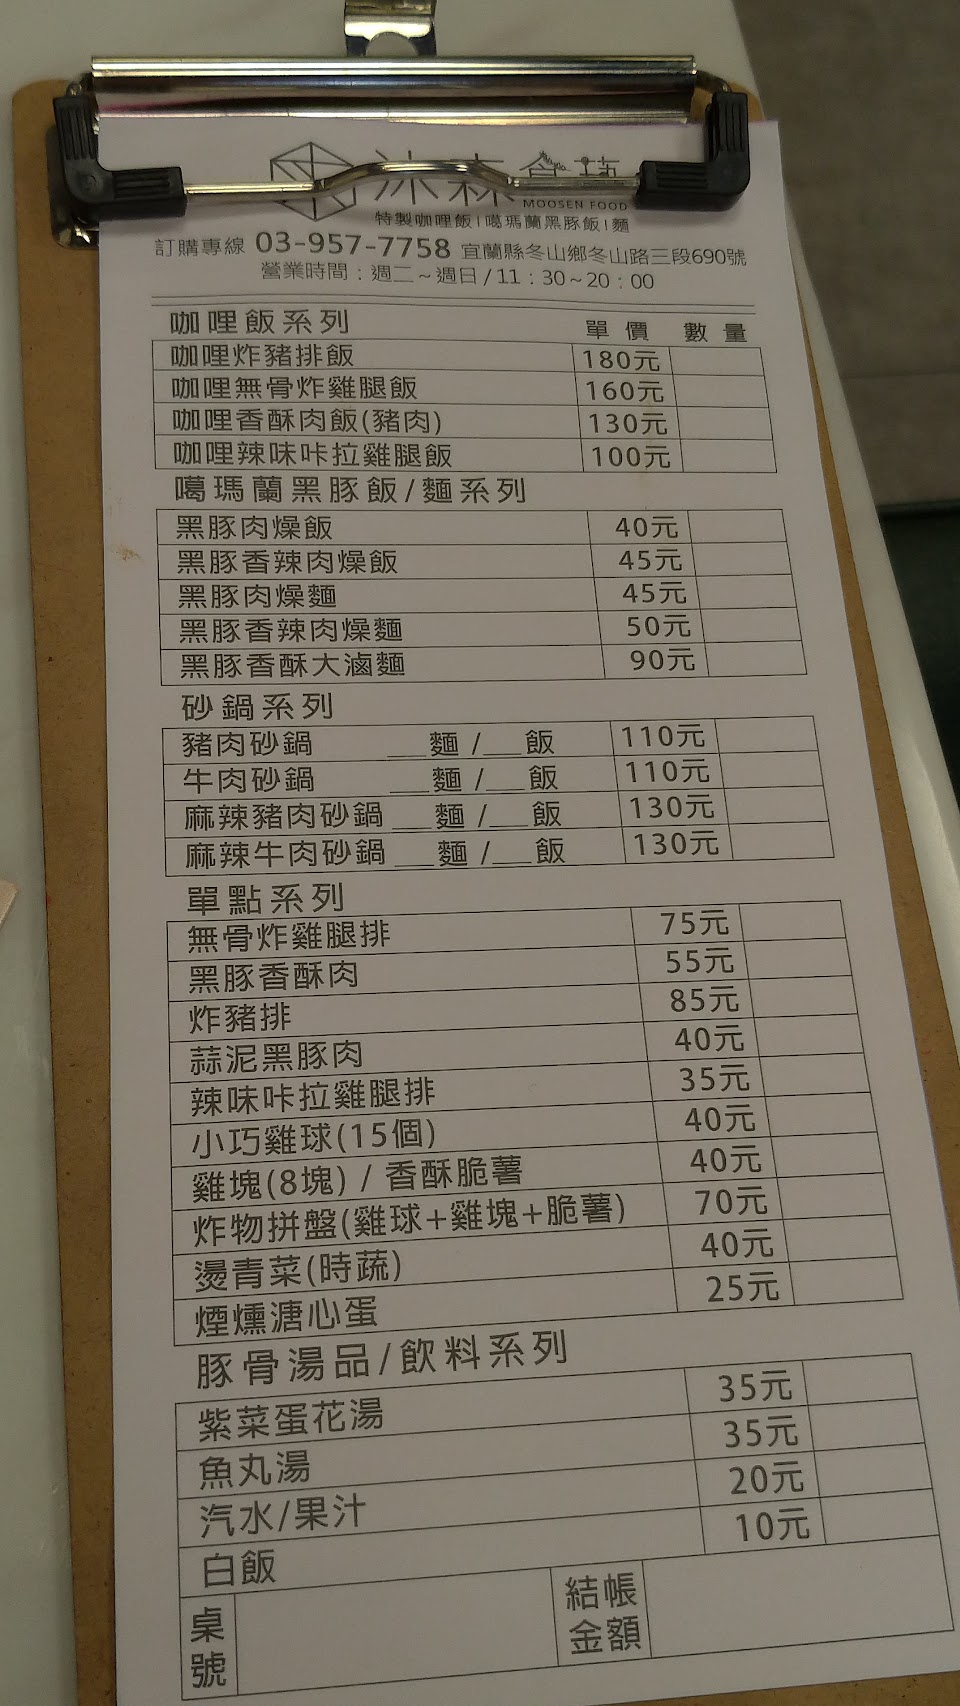 沐森食藝
MOOSEN FOOD
特製咖哩飯|噶瑪蘭黑豚飯|麵
訂購專線 03-957-7758 宜蘭縣冬山鄉冬山路三段690號
營業時間：週二～週日/11：30～20：00
咖哩飯系列 單價 數量
咖哩炸豬排飯 180元
咖哩無骨炸雞腿飯 160元
咖哩香酥肉飯(豬肉) 130元
咖哩辣味咔拉雞腿飯 100元
噶瑪蘭黑豚飯/麵系列
黑豚肉燥飯 40元
黑豚香辣肉燥飯 45元
黑豚肉燥麵 45元
黑豚香辣肉燥麵 50元
黑豚香酥大滷麵 90元
砂鍋系列
豬肉砂鍋 __麵/__飯 110元
牛肉砂鍋 __麵/__飯 110元
麻辣豬肉砂鍋 __麵/__飯 130元
麻辣牛肉砂鍋 __麵/__飯 130元
單點系列
無骨炸雞腿排 75元
黑豚香酥肉 55元
炸豬排 85元
蒜泥黑豚肉 40元
辣味咔拉雞腿排 35元
小巧雞球(15個) 40元
雞塊(8塊) / 香酥脆薯 40元
炸物拼盤(雞球+雞塊+脆薯) 70元
燙青菜(時蔬) 40元
煙燻溏心蛋 25元
豚骨湯品/飲料系列
紫菜蛋花湯 35元
魚丸湯 35元
汽水/果汁 20元
白飯 10元
桌號 結帳金額